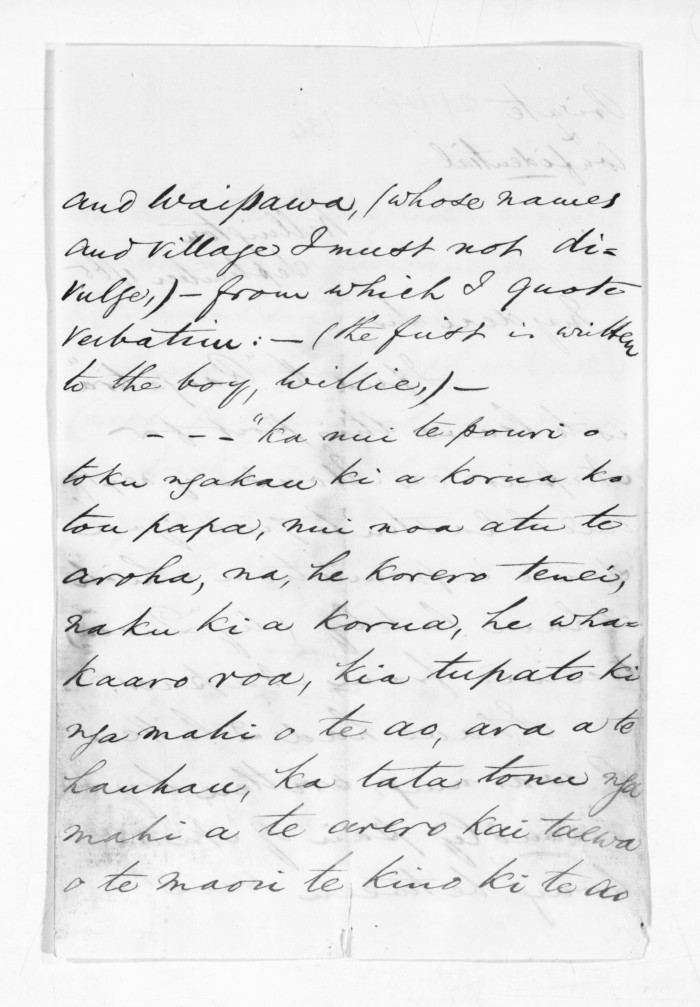 and Waipawa, (whose names
and village I must not di=
vulge,) — from which I quote
verbatim: — (the first is written
to the boy, Willie,) —
- - - "ka nui te pouri o
toku ngakau ki a korua ko
tou papa, nui noa atu te
aroha, na, he korero tenei,
naku ki a korua, he wha=
kaaro roa, kia tupato ki
nga mahi o te ao, ara a te
hauhau, ka tata tonu nga
mahi a te arero kai taewa
o te maori te kino ki te ao
Private
&
Confidential